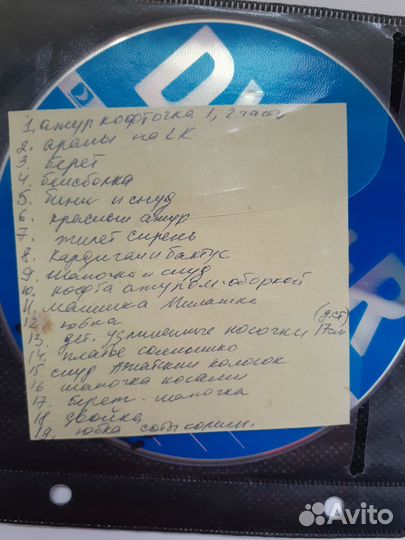 1. ажур кофточка 1, 2 часть
2. араны на LK
3. Берет
4. бейсболка
5. бини и снуд
6. красном ажур
7. жилет сирень
8. кардиган и бактус
9. шапочка и снуд
10. кофта ажуром. оборкой
11. манишка Милашка
12. юбка
13. дет. удлиненные носочки 17см
(д.ст)
14. платье солнышко
15. снуд Азиатский колосок
16 шапочка косами
17. Берет. шапочка
18 двойка
19, юбка соты корич.
Avito